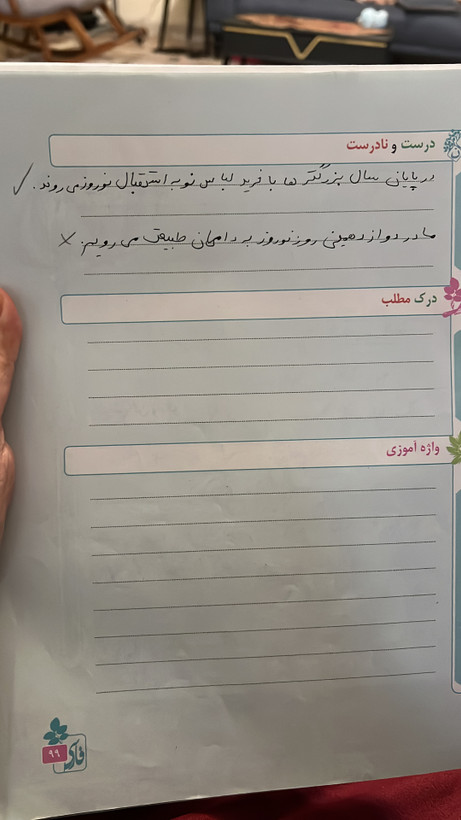 درست و نادرست
در پایان سال بزرگتر ها با خرید لباس نو به استقبال نوروز می روند. ✓
ما در دوازدهمین روز نوروز به دامان طبیعت می رویم. ×
درک مطلب
واژه آموزی
۹۹